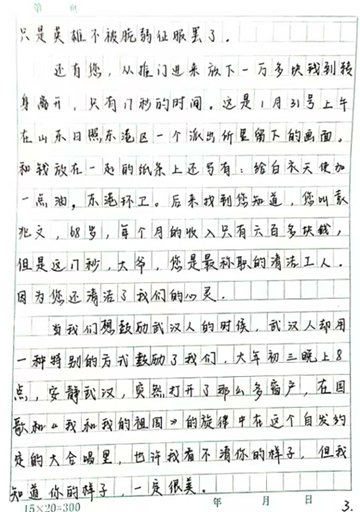 第 页
只是英雄不被脆弱征服罢了。
还有您，从推门进来放下一万多块钱到转
身离开，只有17秒的时间。这是1月31号上午
在山东日照东港区一个派出所里留下的画面。
和钱放在一起的纸条上还写有：给白衣天使加
一点油，东港环卫。后来找到您知道，您叫袁
兆文，68岁，每个月的收入只有六百多块钱，
但是这17秒，大爷，您是最称职的清洁工人。
因为您还清洁了我们的心灵。
当我们想鼓励武汉人的时候，武汉人却用
一种特别的方式鼓励了我们，大年初三晚上8
点，安静武汉，突然打开了那么多窗户，在国
歌和《我和我的祖国》的旋律中在这个自发约
定的大合唱里，也许我看不清你的样子，但我
知道你的样子，一定很美。
15×20=300 年 月 日 3.